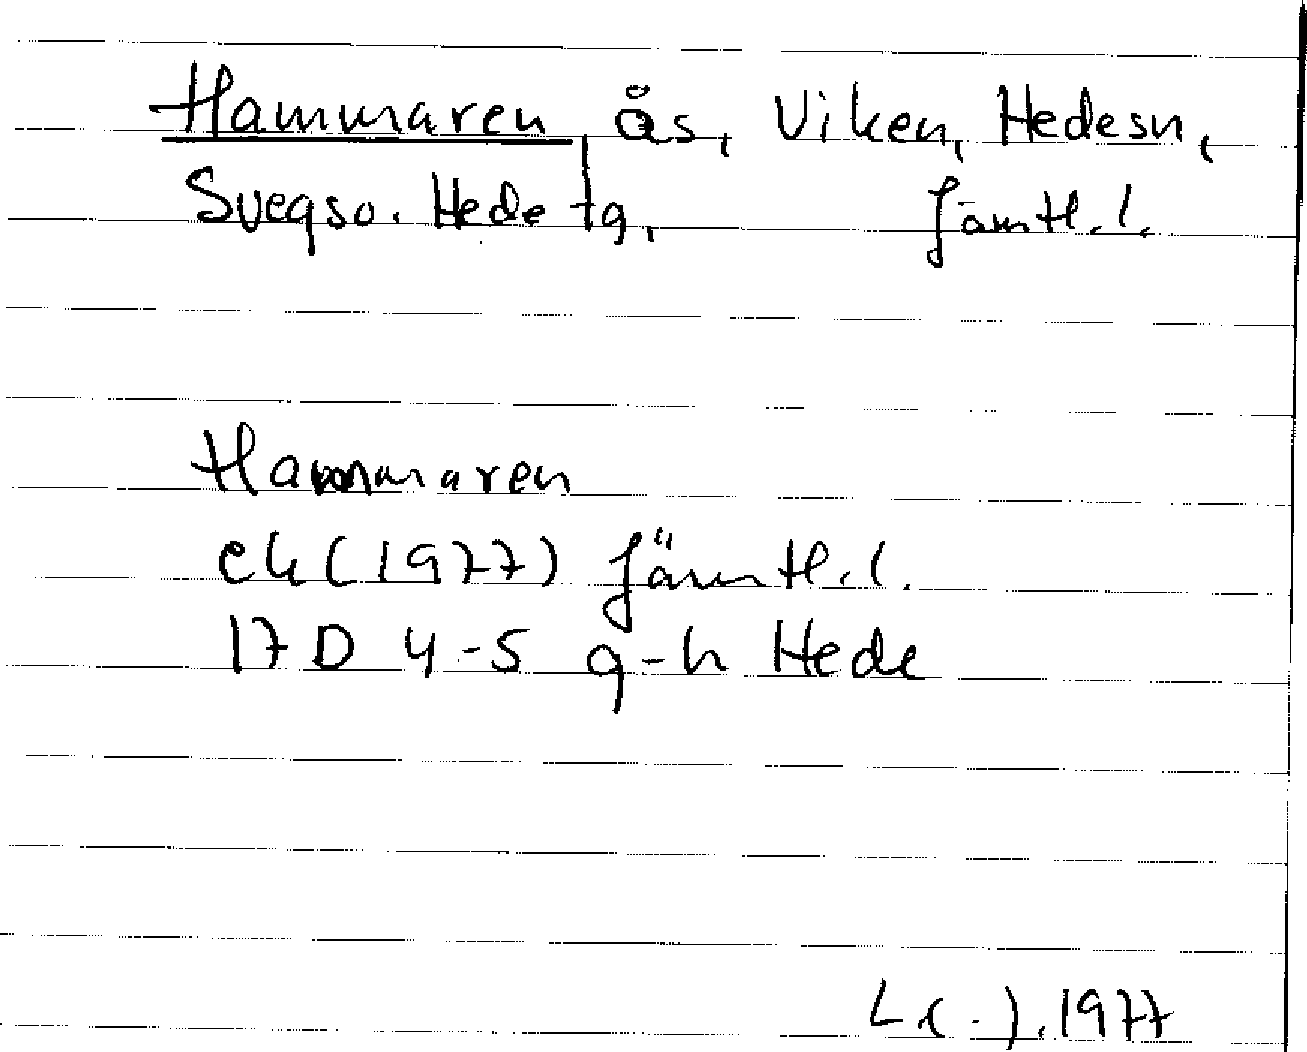 Hammaren, ås, Viken, Hedesn,
Svegso. Hede tg, Jämtl.l.
Hammaren
ek (1977) Jämtl.l.
17D 4-5 g-h Hede
L(-).1977